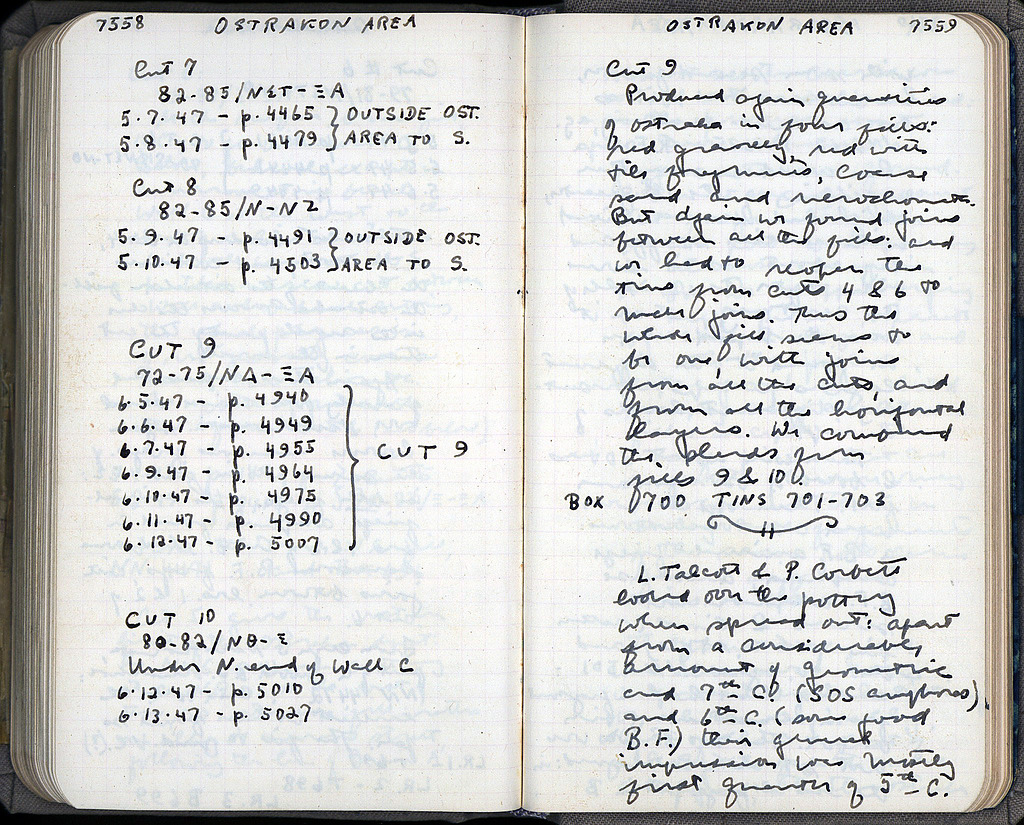 7558 OSTRAKON AREA
Cut 7
82-85/NΣT-ΞA
5.7.47 - p. 4465 } OUTSIDE OST.
5.8.47 - p. 4479 } AREA TO S.
Cut 8
82-85/N-NZ
5.9.47 - p. 4491 } OUTSIDE OST.
5.10.47 - p. 4503 } AREA TO S.
CUT 9
72-75/NΔ-ΞA
6.5.47 - p. 4940
6.6.47 - p. 4949
6.7.47 p. 4955
6.9.47 - p. 4964
6.10.47 - p. 4975
6.11.47 - p. 4990
6.12.47 - p. 5007
CUT 9
CUT 10
80-82/NΘ-Ξ
Under N. end of Wall C
6.12.47 - p. 5010
6.13.47 - p. 5027
OSTRAKON AREA 7559
Cut 9
Produced again quantities
of ostraka in four fills:
red gravelly, red with
tile fragments, coarse
sand, and
But again we found joins
between all the fills. and
we had to reopen the
tins from cuts 4 & 6 to
make joins. Thus the
whole fill seems to
be one, with joins
from all the cuts, and
from all the horizontal
layers. We combined
the sherds from
fills 9 & 10
BOX 700 TINS 701-703
L. Talcott & P. Corbett
looked over the pottery
when spread out: apart
from a considerable
amount of geometric
and 7th C. (SOS amphoras)
and 6th C. (some good
B.F.) their general
impression was mostly
first quarter of 5th C.